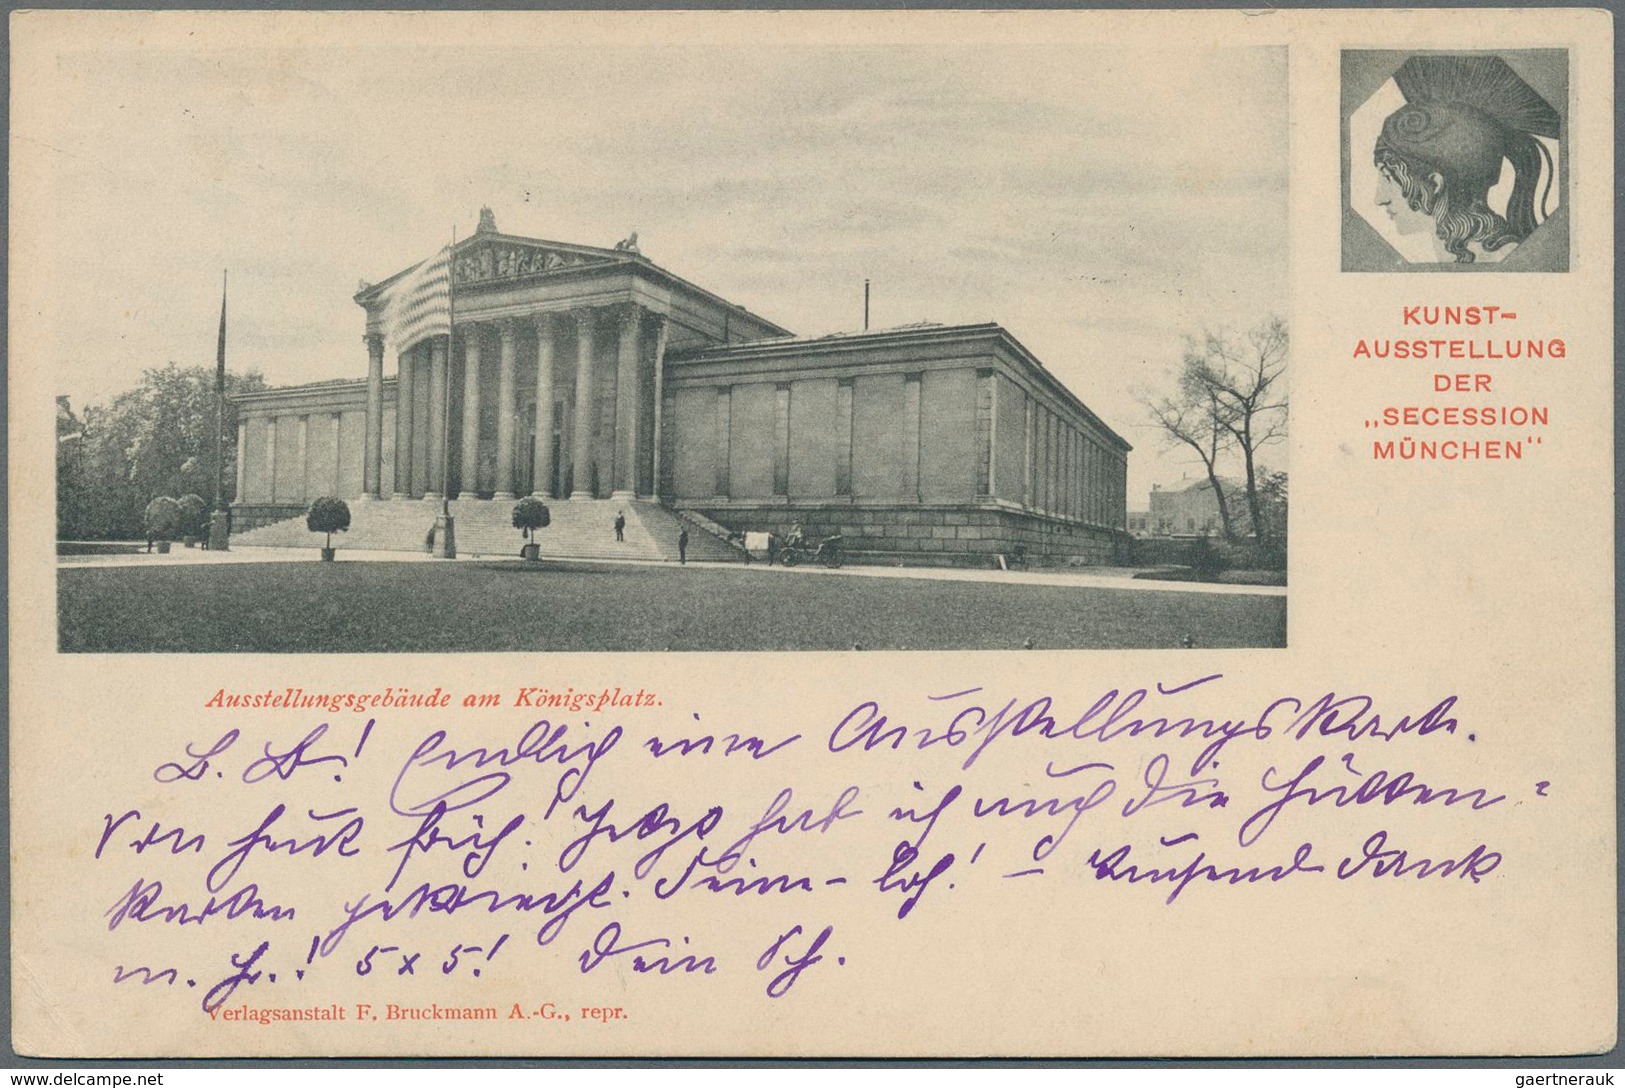 KUNST-
AUSSTELLUNG
DER
„SECESSION
MÜNCHEN“
Ausstellungsgebäude am Königsplatz.
L. L! Endlich eine Ausstellungskarte.
Von heut früh! Jetzt hab ich auch die Hütten=
karten gekriegt. Feine - ! - Tausend Dank
m. H.! 5 x 5! Dein Sch.
Verlagsanstalt F. Bruckmann A.-G., repr.
delcampe.net
gaertnerauk